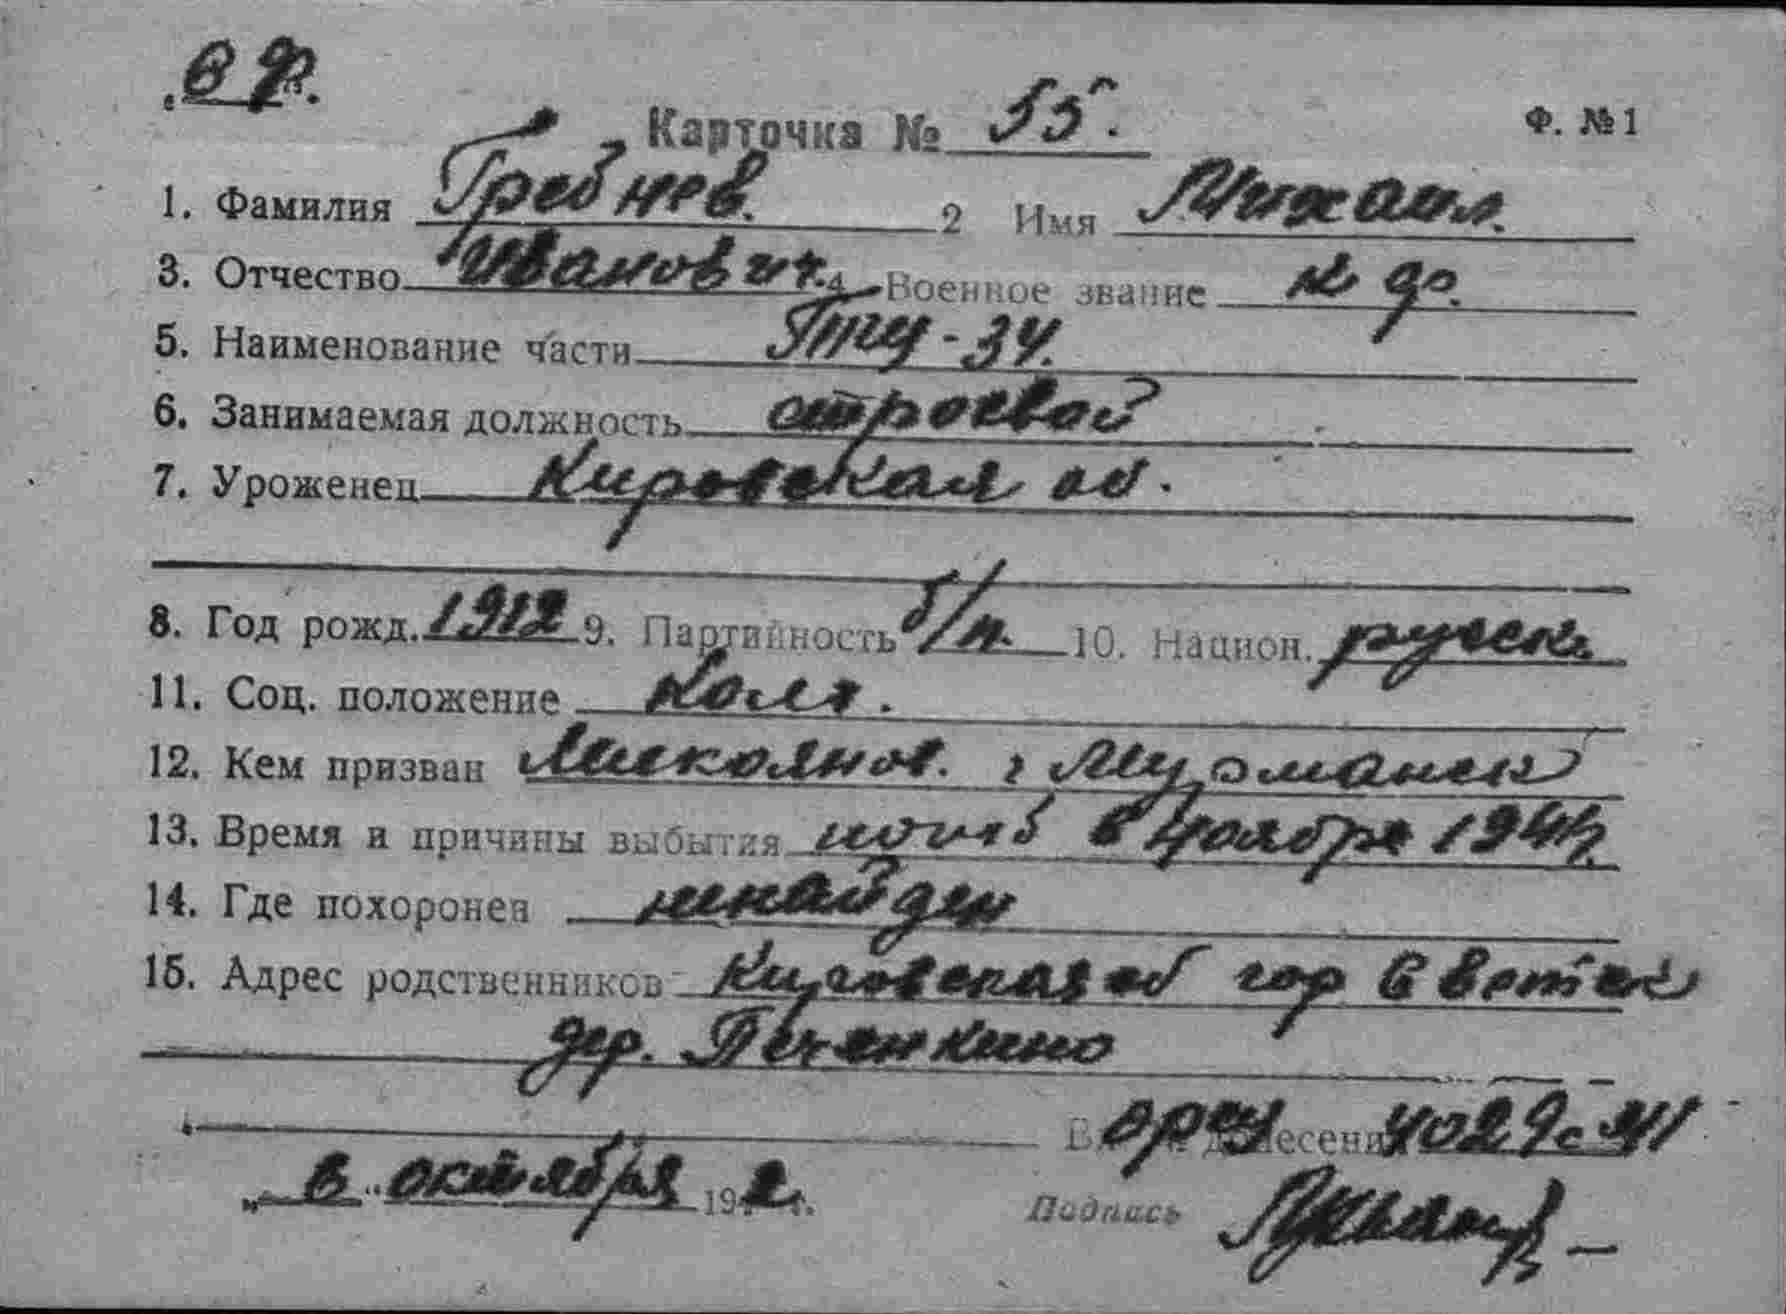 Карточка № 55. Ф. №1
1. Фамилия Гребнев. 2 Имя Михаил.
3. Отчество Иванович. 4 Военное звание к др.
5. Наименование части -34.
6. Занимаемая должность строевой
7. Уроженец Кировская об.
8. Год рожд. 1912 9. Партийность б/п. 10. Национ. русск.
11. Соц. положение колх.
12. Кем призван Микоянов. г Мурманск
13. Время и причины выбытия погиб в ноябре 1941г.
14. Где похоронен ненайден
15. Адрес родственников Кировская об гор
дер. Печенкино
4029с 41
„ 6 " октября 1942 г. Подпись